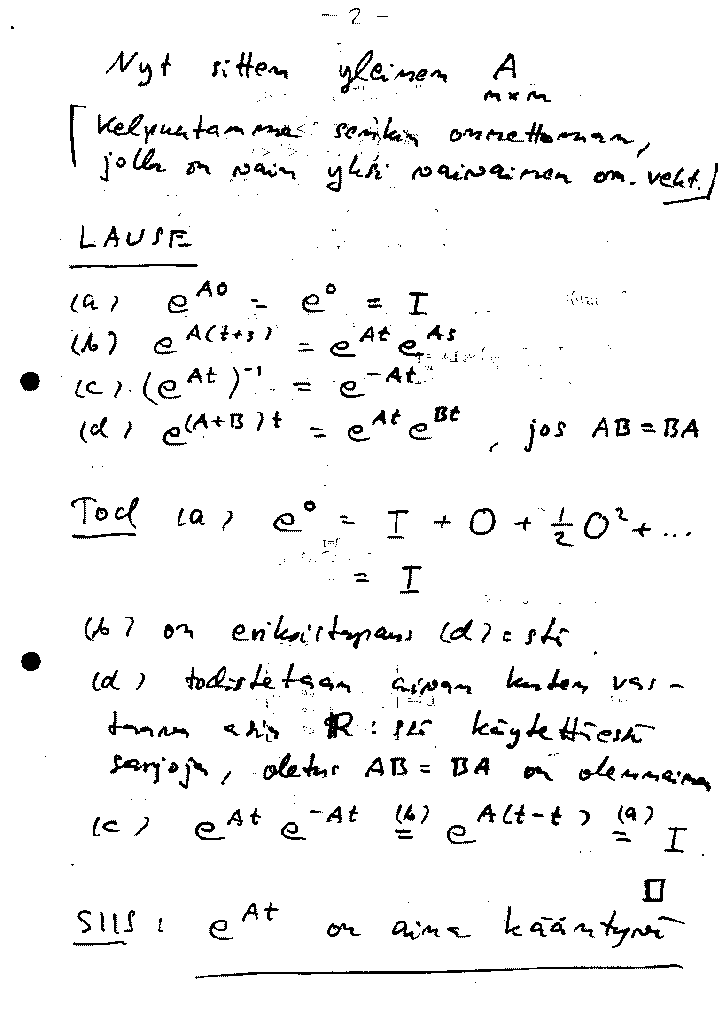 - 2 -
Nyt sitten yleinen A
n×n
[Kelpuutamme senkin onnettoman,
jolla on vain yksi vaivainen om. vekt.]
LAUSE
(a) e^{A0} = e^0 = I
(b) e^{A(t+s)} = e^{At} e^{As}
(c) (e^{At})^{-1} = e^{-At}
(d) e^{(A+B)t} = e^{At} e^{Bt}, jos AB = BA
Tod (a) e^0 = I + O + 1/2 O^2 + ...
= I
(b) on erikoistapaus (d):stä
(d) todistetaan aivan kuten vas-
taava asia R:ssä käytettäessä
sarjoja, oletus AB = BA on olennainen
(c) e^{At} e^{-At} (b)= e^{A(t-t)} (a)= I
□
SIIS: e^{At} on aina kääntyvä